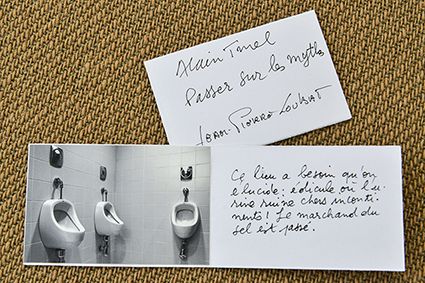 Alain
Passer sur les mythes
JEAN-PIERRE LOUBAT
Ce lieu a besoin qu'on
élucide : édicule où l'u-
rine ruine chers inconti-
nents ! Le marchand du
sel est passé.